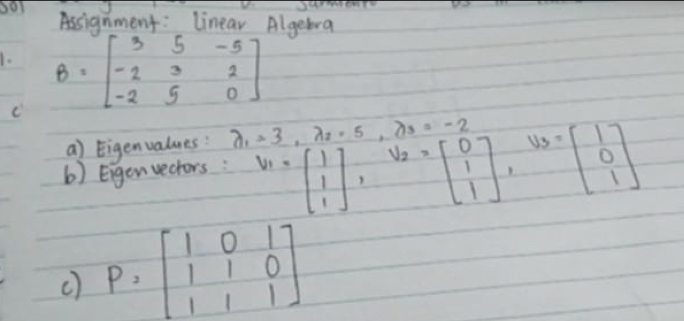 501
Assignment: Linear Algebra
1.
B = [ 3 5 -5
-2 3 2
-2 5 0 ]
c
a) Eigenvalues: λ₁ = 3, λ₂ = 5, λ₃ = -2
b) Eigenvectors: V₁ = [ 1 1 1 ], V₂ = [ 0 1 1 ], V₃ = [ 1 0 1 ]
c) P = [ 1 0 1
1 1 0
1 1 1 ]